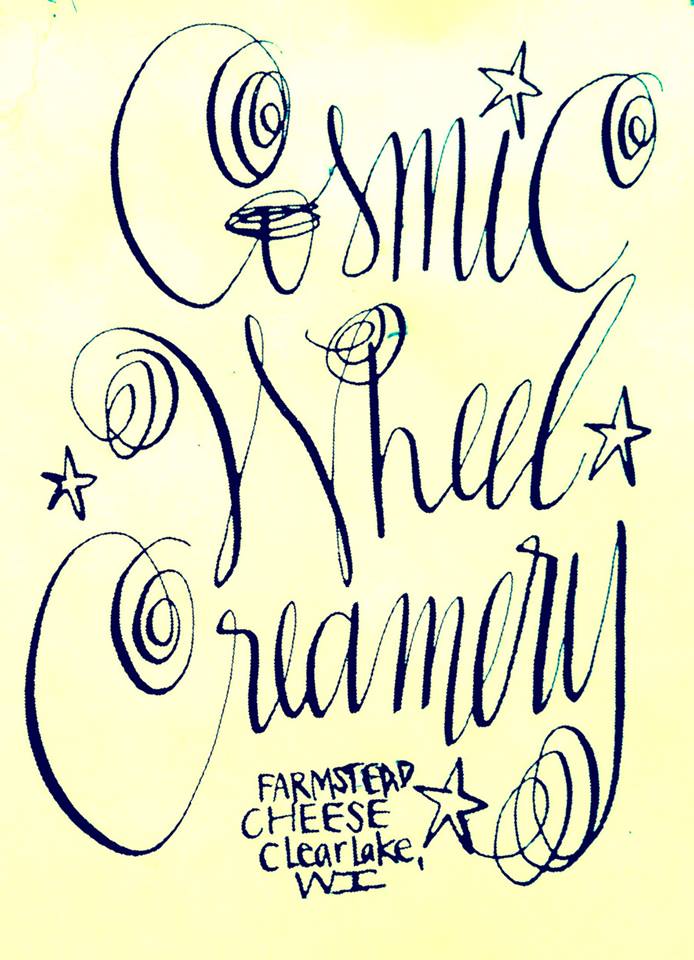 Cosmic
Wheel
Creamery
FARMSTEAD
CHEESE
Clear Lake,
WI